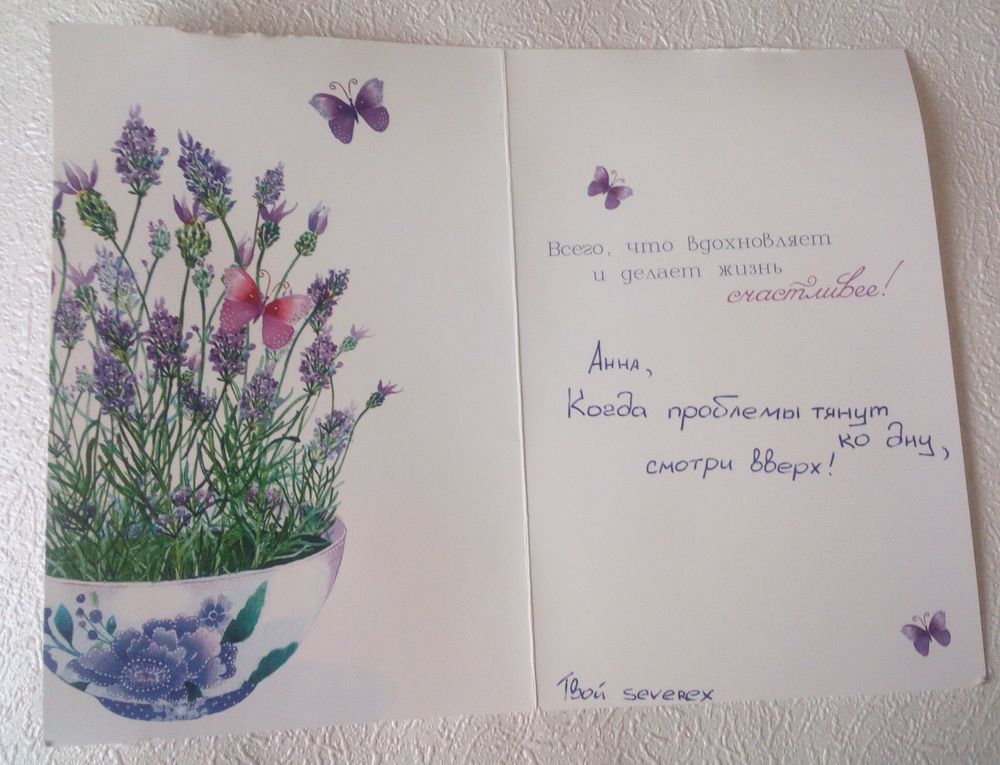 Всего, что вдохновляет
и делает жизнь
счастливее!
Анна,
Когда проблемы тянут
ко дну,
смотри вверх!
Твой severex